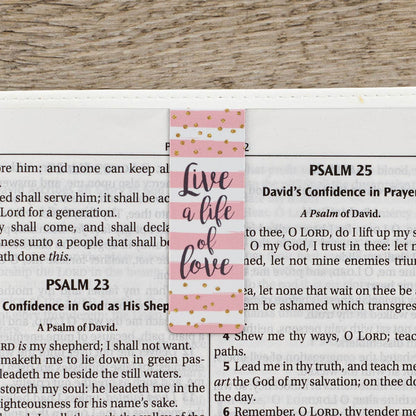 2
ore him: and none can keep al
ed shall serve him; it shall be ac
Lord for a generation.
y shall come, and shall decla
usness unto a people that shall b
ath done this.
PSALM 23
Confidence in God as His Shep
A Psalm of David.
ORD is my shepherd; I shall not want.
maketh me to lie down in green past
leadeth me beside the still waters.
storeth my soul: he leadeth me in the
ighteousness for his name's sake.
Live
a life
of
love
PSALM 25
David's Confidence in Prayer
A Psalm of David.
to thee, O LORD, do I lift up my s
O my God, I trust in thee: let
ed, let not mine enemies triun
ea, let none that wait on thee be
m be ashamed which transgres
4 Shew me thy ways, O LORD; teach
paths.
5 Lead me in thy truth, and teach me
art the God of my salvation; on thee d
the day.
6 Remember, O LORD, thy tender